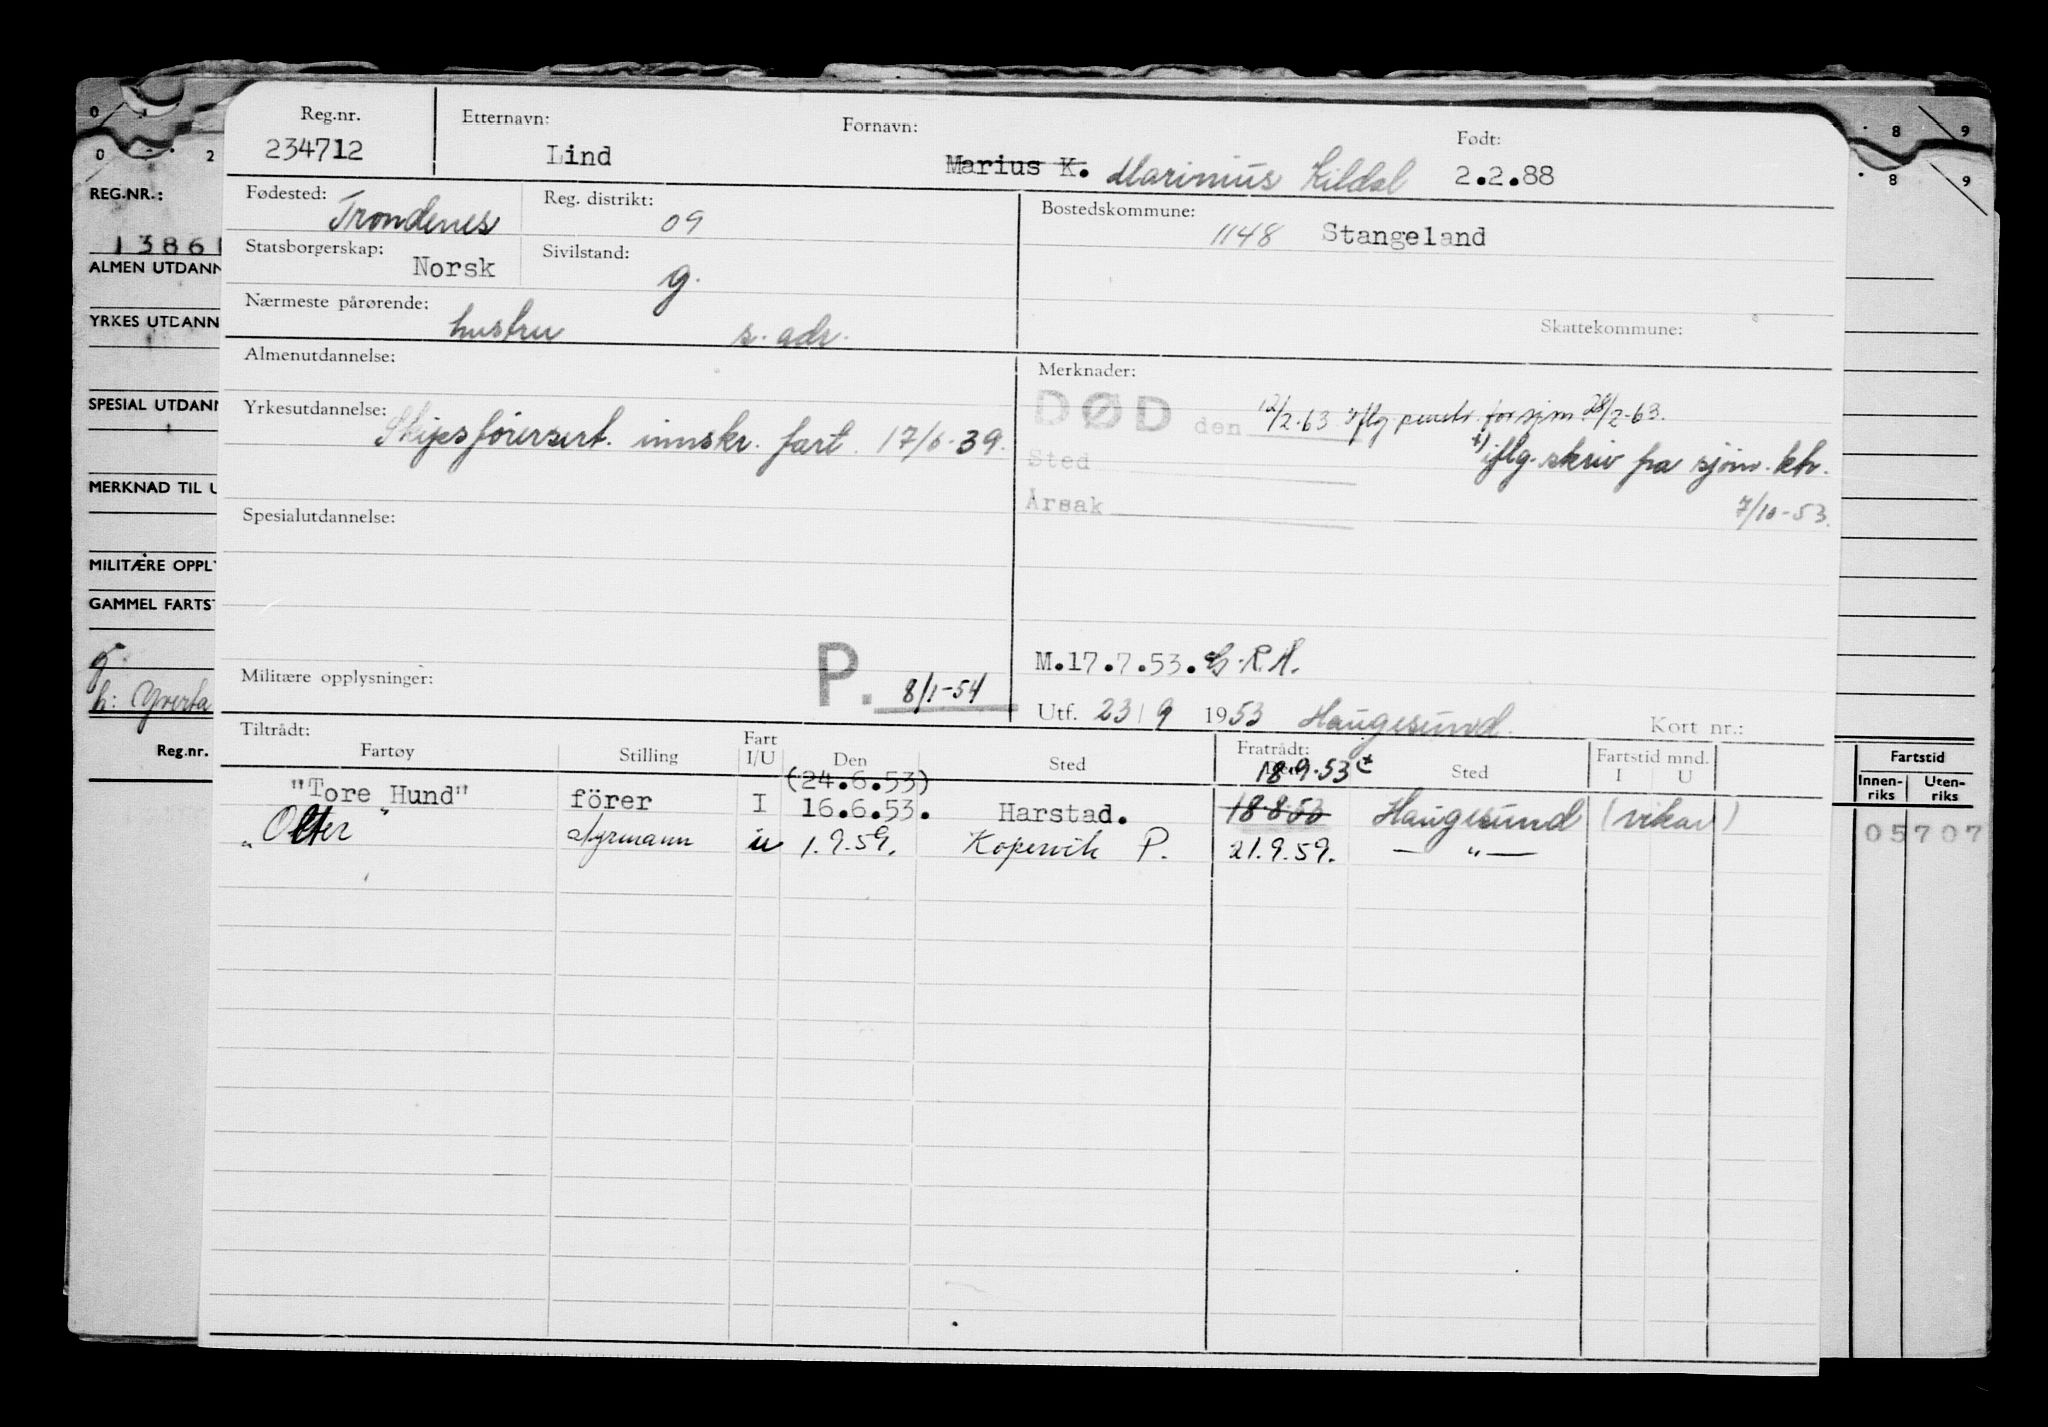 0 8 9
0 2 8 9
Reg.nr. Etternavn: Fornavn: Født:
234712 Lind Marius K. Marinius Kildal 2.2.88
REG.NR.:
Fødested: Trondenes Reg. distrikt: 09 Bostedskommune:
1148 Stangeland
13861
Statsborgerskap: Norsk Sivilstand: g.
ALMEN UTDANN
Nærmeste pårørende: hustru s. adr.
YRKES UTDANN
Skattekommune:
Almenutdannelse: Merknader:
SPESIAL UTDANN
DØD den 12/2-63 iflg. for sjm 28/2-63.
Yrkesutdannelse: Skipsförersert. innskr. fart. 17/6-39.
Sted +) iflg. skriv fra sjøm. ktr.
MERKNAD TIL U
Årsak 7/10-53.
Spesialutdannelse:
MILITÆRE OPPLY
GAMMEL FARTST
g
M.17.7.53.
Militære opplysninger: P. 8/1-54
h: Yverta
Utf. 23/9 1953 Haugesund. Kort nr.:
Tiltrådt: Fratrådt:
Reg.nr. Fartøy Stilling Fart I/U Den Sted Sted Fartstid mnd. I U Fartstid
Innen-riks Uten-riks
(24.6.53) 18.9.53 +
"Tore Hund" förer I 16.6.53. Harstad. 18.8.53 Haugesund (vikar)
"Olter" styrmann u 1.9.59. Kopervik P. 21.9.59. — " —
05707